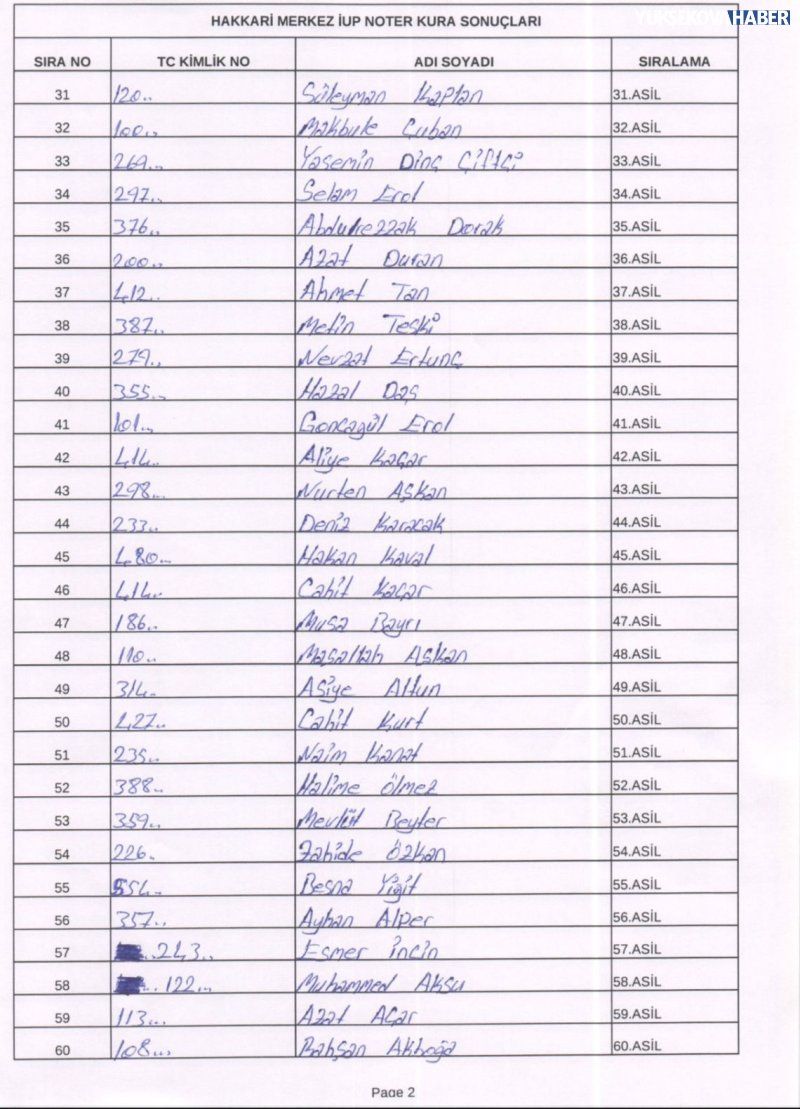 HAKKARİ MERKEZ İUP NOTER KURA SONUÇLARI
YÜKSEKOVA HABER
SIRA NO TC KİMLİK NO ADI SOYADI SIRALAMA
31 120.. Süleyman Kaplan 31.ASİL
32 100... Makbule Çuban 32.ASİL
33 269... Yasemin Dinç Çiftçi 33.ASİL
34 297.. Selam Erol 34.ASİL
35 376.. Abdulrezzak Dorak 35.ASİL
36 200... Azat Duran 36.ASİL
37 412.. Ahmet Tan 37.ASİL
38 387.. Metin Teski 38.ASİL
39 279.. Nevzat Ertunç 39.ASİL
40 355... Hazal Daş 40.ASİL
41 101... Goncagül Erol 41.ASİL
42 414.. Aliye Kaçar 42.ASİL
43 298... Nurten Aşkan 43.ASİL
44 233.. Deniz Karacak 44.ASİL
45 480... Hakan Kaval 45.ASİL
46 414.. Cahit Kaçar 46.ASİL
47 186.. Musa Bayrı 47.ASİL
48 110.. Maşallah Aşkan 48.ASİL
49 314.. Asiye Altun 49.ASİL
50 427.. Cahit Kurt 50.ASİL
51 235.. Naim Kanat 51.ASİL
52 388.. Halime Ölmez 52.ASİL
53 359.. Mevlüt Beyter 53.ASİL
54 226. Zahide Özkan 54.ASİL
55 554.. Besna Yiğit 55.ASİL
56 357.. Ayhan Alper 56.ASİL
57 ..243.. Esmer İncin 57.ASİL
58 .. 122... Muhammed Aksu 58.ASİL
59 113... Azat Açar 59.ASİL
60 108... Bahşan Akboğa 60.ASİL
Page 2